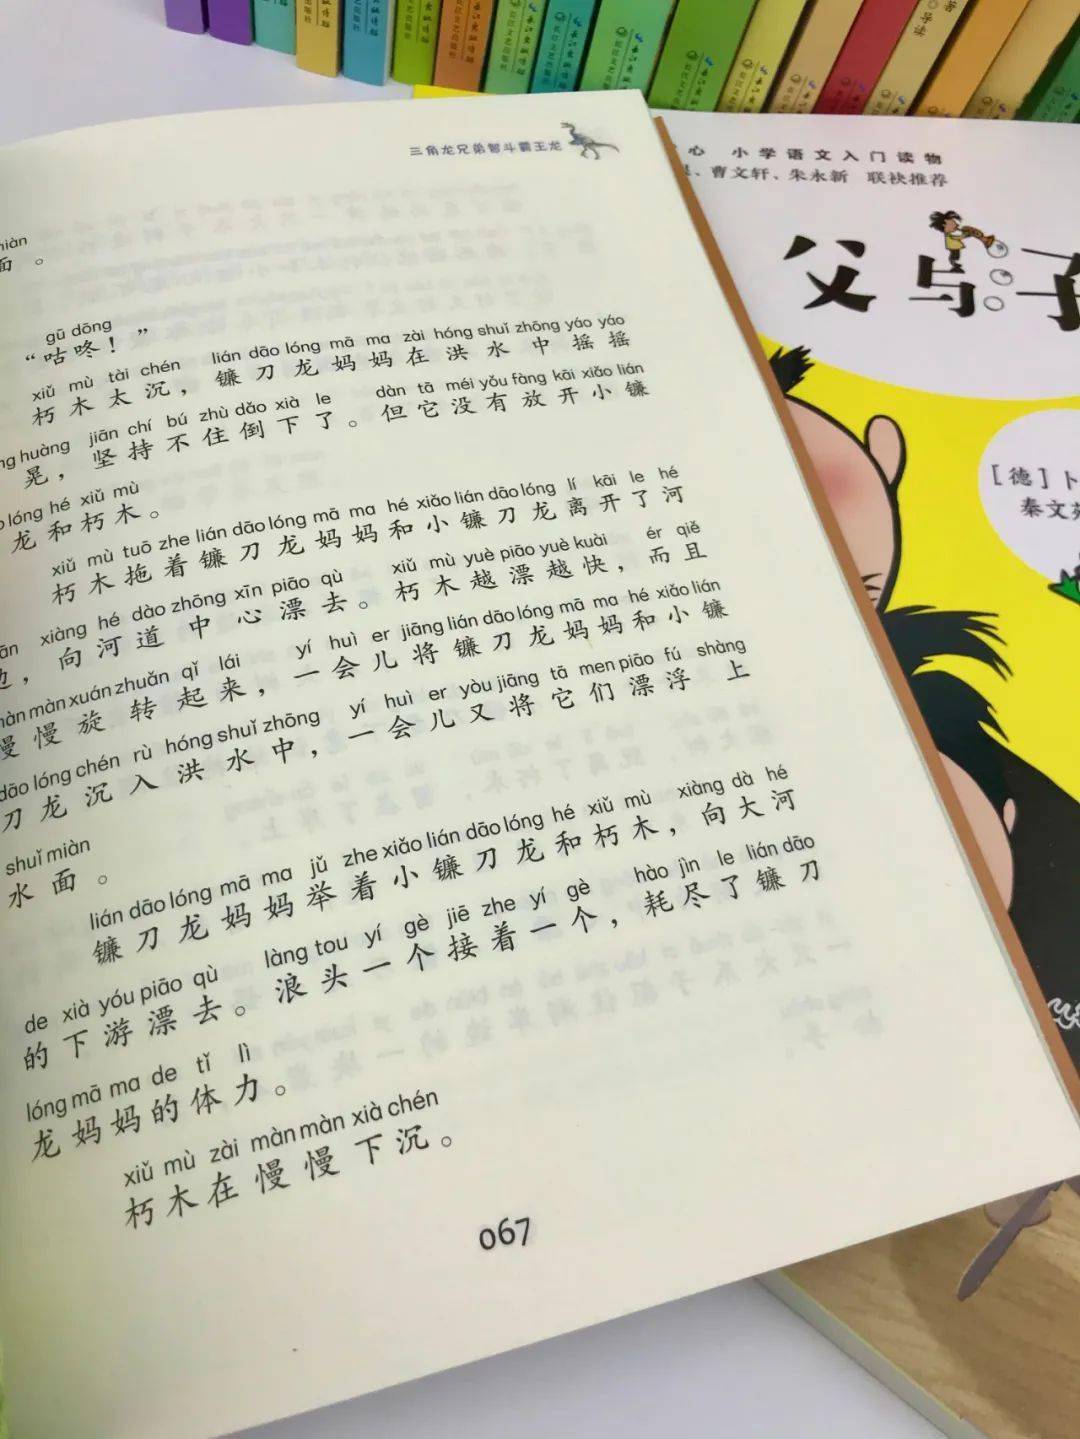 三角龙兄弟智斗霸王龙
miàn
面。
gū dōng
“咕咚！”
xiǔ mù tài chén lián dāo lóng mā ma zài hóng shuǐ zhōng yáo yáo
朽木太沉，镰刀龙妈妈在洪水中摇摇
huàng jiān chí bú zhù dǎo xià le dàn tā méi yǒu fàng kāi xiǎo lián
晃，坚持不住倒下了。但它没有放开小镰
lóng hé xiǔ mù
龙和朽木。
xiǔ mù tuō zhe lián dāo lóng mā ma hé xiǎo lián dāo lóng lí kāi le hé
朽木拖着镰刀龙妈妈和小镰刀龙离开了河
xiàng hé dào zhōng xīn piāo qù xiǔ mù yuè piāo yuè kuài ér qiě
边，向河道中心漂去。朽木越漂越快，而且
màn xuán zhuǎn qǐ lái yí huì er jiāng lián dāo lóng mā ma hé xiǎo lián
慢慢旋转起来，一会儿将镰刀龙妈妈和小镰
dāo lóng chén rù hóng shuǐ zhōng yí huì er yòu jiāng tā men piāo fú shàng
刀龙沉入洪水中，一会儿又将它们漂浮上
shuǐ miàn
水面。
lián dāo lóng mā ma jǔ zhe xiǎo lián dāo lóng hé xiǔ mù xiàng dà hé
镰刀龙妈妈举着小镰刀龙和朽木，向大河
de xià yóu piāo qù làng tou yí gè jiē zhe yí gè hào jìn le lián dāo
的下游漂去。浪头一个接着一个，耗尽了镰刀
lóng mā ma de tǐ lì
龙妈妈的体力。
xiǔ mù zài màn màn xià chén
朽木在慢慢下沉。
067
心 小学语文入门读物
、曹文轩、朱永新 联袂推荐
父与子
［德］卜
秦文